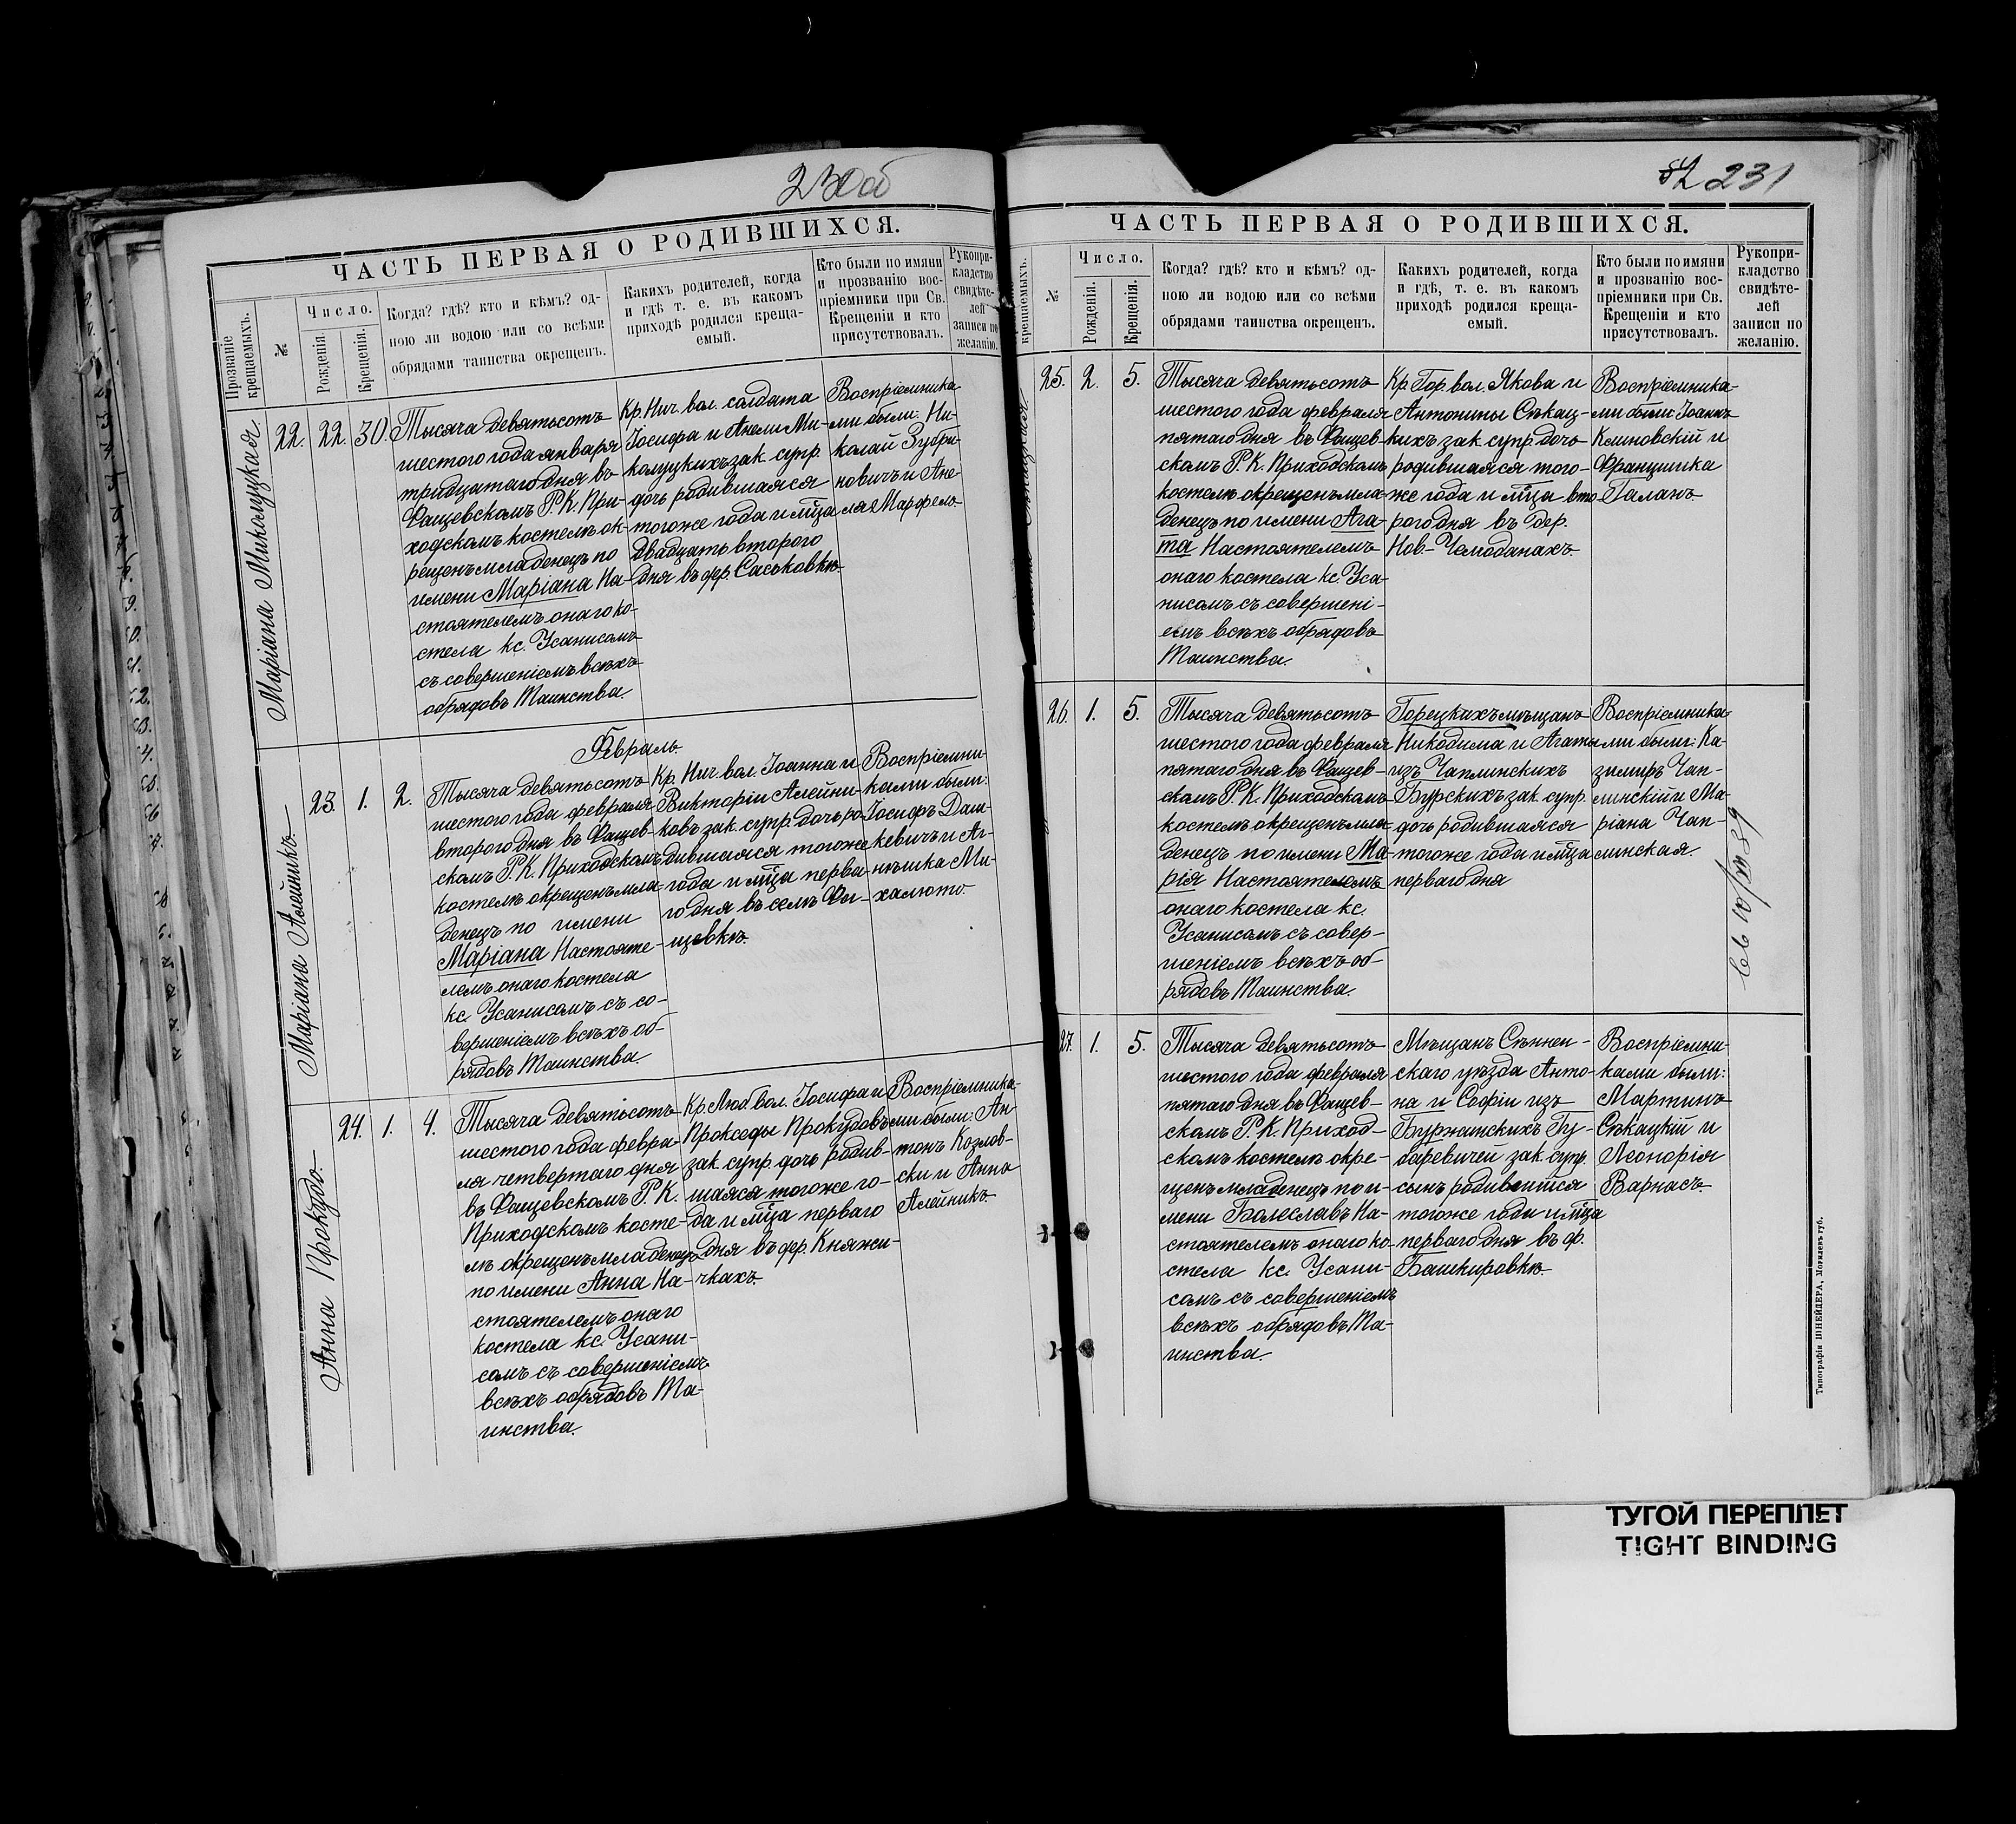 230об
ЧАСТЬ ПЕРВАЯ О РОДИВШИХСЯ.
Прозваніе крещаемыхъ.
№
Число.
Рожденія.
Крещенія.
Когда? гдѣ? кто и кѣмъ? од-
ною ли водою или со всѣми
обрядами таинства окрещенъ.
Какихъ родителей, когда
и гдѣ т. е. въ какомъ
приходѣ родился креща-
емый.
Кто были по имяни
и прозванію вос-
пріемники при Св.
Крещеніи и кто
присутствовалъ.
Рукопри-
кладство
свидѣте-
лей
записи по
желанію.
Маріана Миколуцкая.
22. 22. 30.
Тысяча девятьсотъ
шестого года января
тридцатаго дня въ
Фащевскомъ Р. К. При-
ходскомъ костелѣ ок-
рещенъ младенецъ по
имени Маріана На-
стоятелемъ онаго ко-
стела кс. Усанисомъ
съ совершеніемъ всѣхъ
обрядовъ Таинства.
Кр. Нич. вол. солдата
Іосифа и Анели Ми-
колуцкихъ зак. супр.
дочь родившаяся
тогоже года и мца
двадцать второго
дня въ дер. Саськовкѣ
Воспріемника-
ми были: Ни-
колай Зубри-
новичъ и Ане-
ля Марфель.
Февраль
Маріана Алейникъ.
23. 1. 2.
Тысяча девятьсотъ
шестого года февраля
второго дня въ Фащев-
скомъ Р. К. Приходскомъ
костелѣ окрещенъ мла-
денецъ по имени
Маріана Настояте-
лемъ онаго костела
кс. Усанисомъ съ со-
вершеніемъ всѣхъ об-
рядовъ Таинства.
Кр. Нич. вол. Іоанна и
Викторіи Алейни-
ковъ зак. супр. дочь ро-
дившаяся тогоже
года и мца перва-
го дня въ селѣ Фа-
щевкѣ.
Воспріемни-
ками были:
Іосифъ Даш-
кевичъ и Аг-
нѣшка Ми-
халюто
Анна Прокудо.
24. 1. 4.
Тысяча девятьсотъ
шестого года февра-
ля четвертаго дня
въ Фащевскомъ Р. К.
Приходскомъ косте-
лѣ окрещенъ младенецъ
по имени Анна На-
стоятелемъ онаго
костела кс. Усани-
сомъ съ совершеніемъ
всѣхъ обрядовъ Та-
инства.
Кр. Люб вол. Іосифа и
Прокседы Прокудовъ
зак. супр. дочь родив-
шаяся тогоже го-
да и мца перваго
дня въ дер. Княжи-
чкахъ.
Воспріемника-
ми были: Ан-
тонъ Козлов-
ски и Анна
Алейникъ.
231
ЧАСТЬ ПЕРВАЯ О РОДИВШИХСЯ.
крещаемыхъ.
№
Число.
Рожденія.
Крещенія.
Когда? гдѣ? кто и кѣмъ? од-
ною ли водою или со всѣми
обрядами таинства окрещенъ.
Какихъ родителей, когда
и гдѣ, т. е. въ какомъ
приходѣ родился креща-
емый.
Кто были по имяни
и прозванію вос-
пріемники при Св.
Крещеніи и кто
присутствовалъ.
Рукопри-
кладство
свидѣте-
лей
записи по
желанію.
25. 2. 5.
Тысяча девятьсотъ
шестого года февраля
пятаго дня въ Фащев-
скомъ Р. К. Приходскомъ
костелѣ окрещенъ мла-
денецъ по имени Ага-
та Настоятелемъ
онаго костела кс. Уса-
нисомъ съ совершені-
емъ всѣхъ обрядовъ
Таинства.
Кр Гор. вол. Якова и
Антонины Сѣкац-
кихъ зак. супр. дочь
родившаяся того-
же года и мца вто
рого дня въ дер.
Нов-Чемоданахъ.
Воспріемника-
ми были Іоаннъ
Климовскій и
Францишка
Галанъ
26. 1. 5.
Тысяча девятьсотъ
шестого года февраля
пятаго дня въ Фащев-
скомъ Р. К. Приходскомъ
костелѣ окрещенъ мла-
денецъ по имени Ма-
рія Настоятелемъ
онаго костела кс.
Усанисомъ съ совер-
шеніемъ всѣхъ об-
рядовъ Таинства.
Горецкихъ мѣщанъ
Никодима и Агаты
изъ Чаплинскихъ
Бурскихъ зак. супр.
дочь родившаяся
тогоже года и мца
перваго дня
Воспріемника-
ми были: Ка-
зимиръ Чап-
линскій и Ма-
ріана Чап-
линская.
27. 1. 5.
Тысяча девятьсотъ
шестого года февраля
пятаго дня въ Фащев-
скомъ Р. К. Приход-
скомъ костелѣ окре-
щенъ младенецъ по и-
мени Болеславъ На-
стоятелемъ онаго ко
стела кс. Усани-
сомъ съ совершеніемъ
всѣхъ обрядовъ Та-
инства.
Мѣщанъ Сѣннен-
скаго уѣзда Анто-
на и Софіи изъ
Буржинскихъ Гу-
баревичеи зак. супр.
сынъ родившійся
тогоже года и мца
перваго дня въ ф.
Башкировкѣ.
Воспріемни-
ками были:
Мартинъ
Сѣкацкій и
Леонорія
Варнасъ.
Типографія ШНЕЙДЕРА, Могилевъ губ.
ТУГОЙ ПЕРЕПЛЕТ
TIGHT BINDING